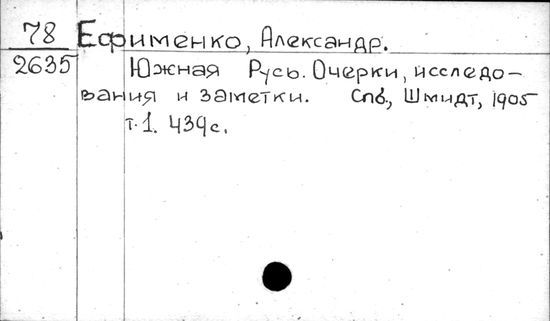 78 Ефименко, Александр.
2635 Южная Русь. Очерки, исследо-
вания и заметки. Спб., Шмидт, 1905
т.1. 439с.